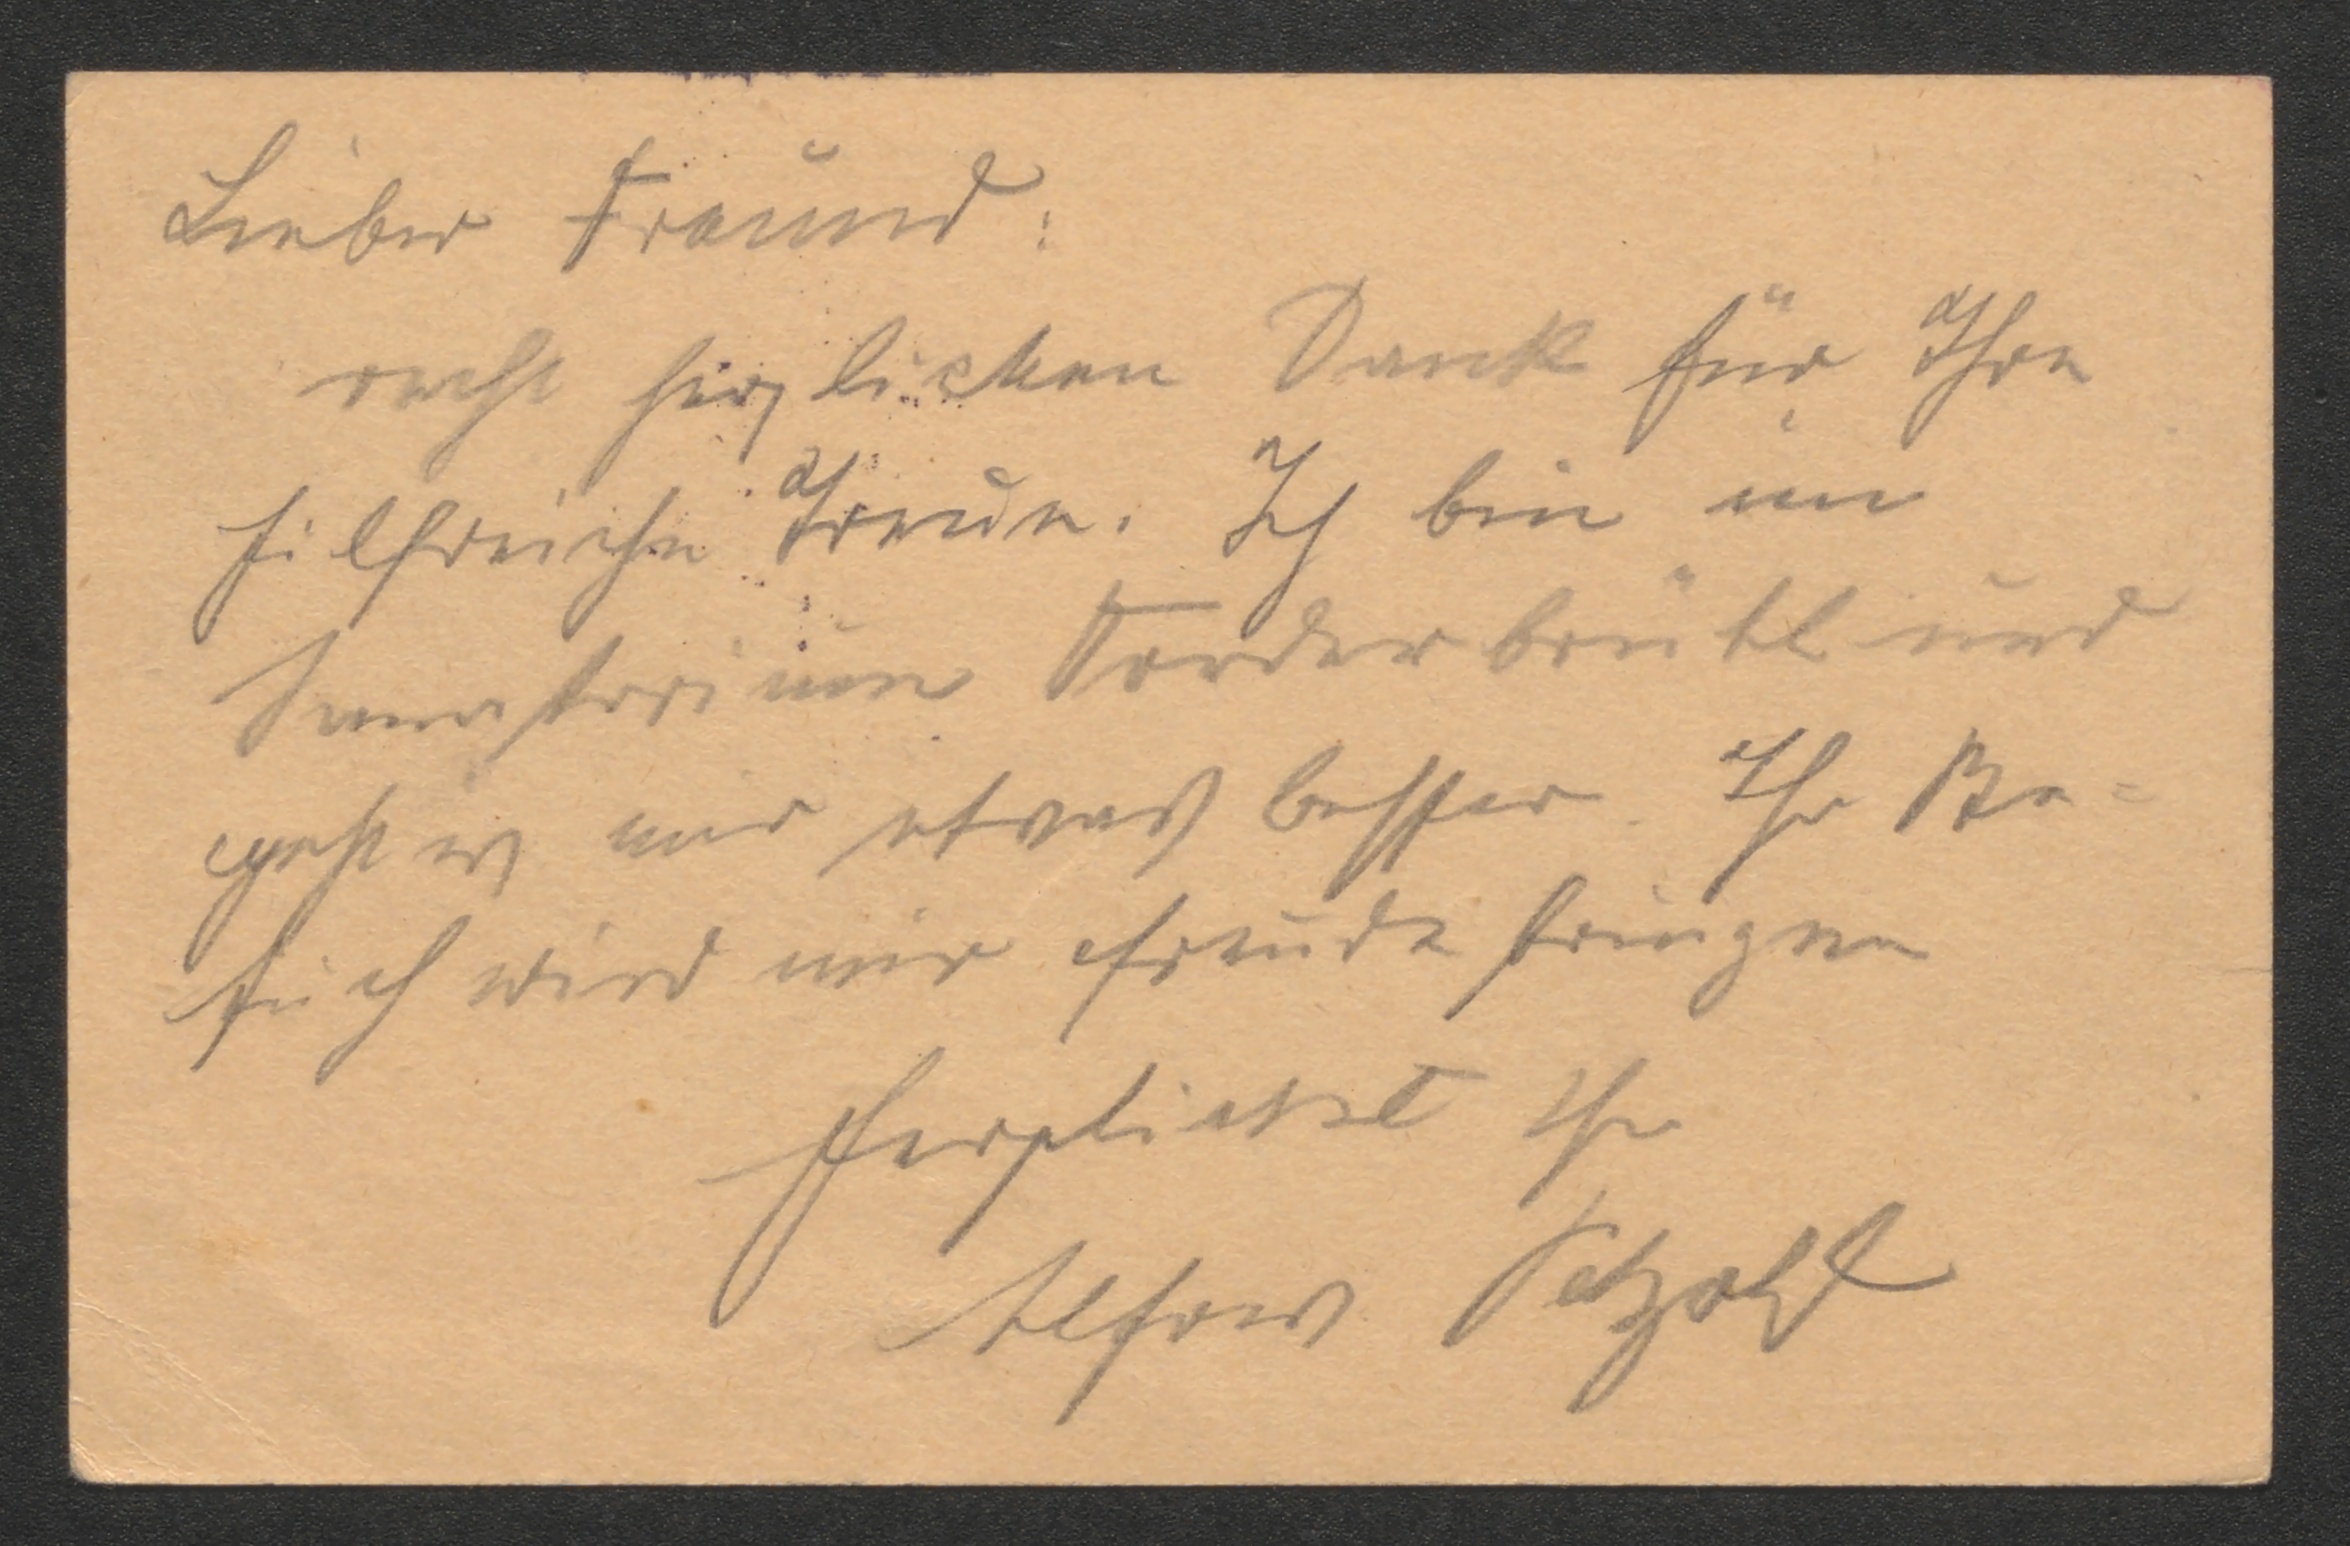 Lieber Freund:
recht herzlichen Dank für Ihre
hilfreiche Treue. Ich bin im
Sanatorium Vorderbrühl und
geht es mir etwas besser. Ihr Be-
such wird mir Freude bringen
Herzlichst Ihr
Alfons Petzold